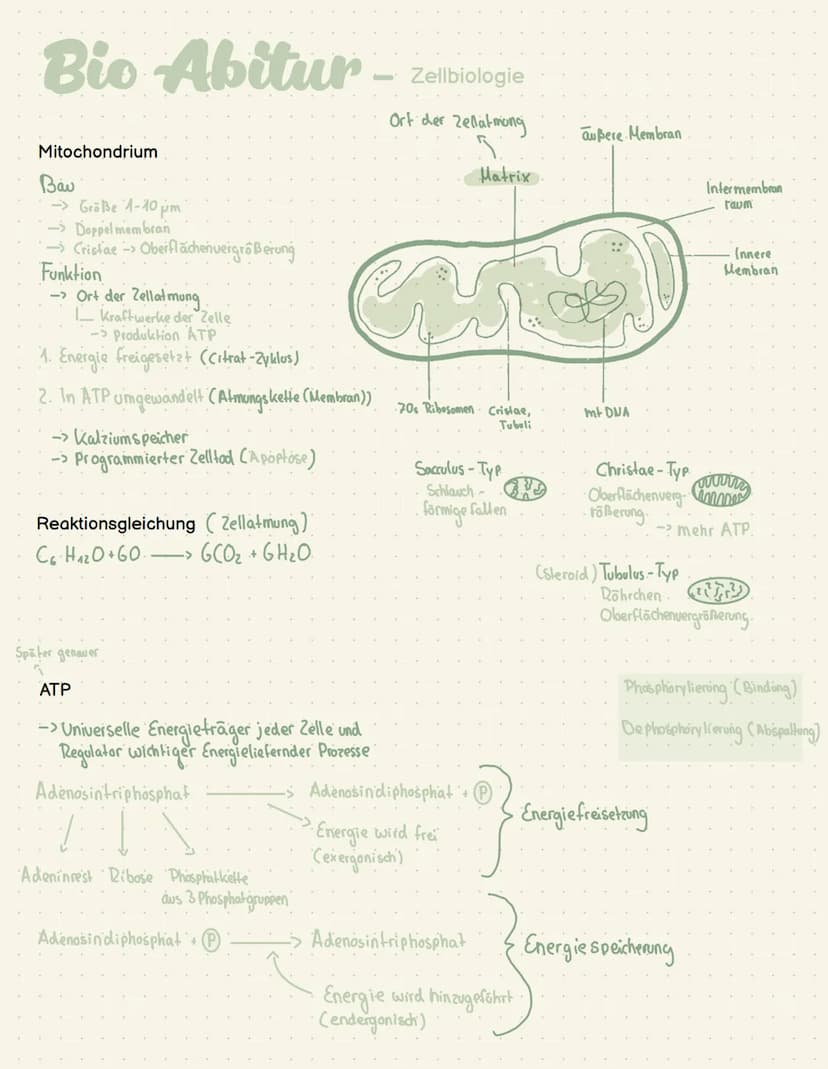 Bio Abitur – Zellbiologie
Mitochondrium
Bau
-> Größe 1-10 µm
-> Doppelmembran
-> Cristae -> Oberflächenvergrößerung
Funktion
-> Ort der Zellatmung
Kraftwerke der Zelle
-> Produktion ATP
1. Energie freigesetzt (Citrat-Zyklus)
2. In ATP umgewandelt (Atmungskette (Membran))
-> Kalziumspeicher
-> Programmierter Zelltod (Apoptose)
Ort der Zellatmung
Matrix
äußere Membran
Intermembran
raum
Innere
Membran
70s Ribosomen
Cristae,
Tubuli
mt DNA
Sacculus-Typ
Schlauch-
förmige Falten
Christae-Typ
Oberflächenverg-
rößerung
-> mehr ATP
(Steroid) Tubulus-Typ
Röhrchen
Oberflächenvergrößerung
Reaktionsgleichung (Zellatmung)
C₆H₁₂O+6O -> 6CO₂ + 6H₂O
Später genauer
ATP
-> Universelle Energieträger jeder Zelle und
Regulator wichtiger Energieliefernder Prozesse
Phosphorylierung (Bindung)
Dephosphorylierung (Abspaltung)
Adenosintriphosphat -> Adenosindiphosphat + P
Energie wird frei
(exergonisch)
Energiefreisetzung
Adeninrest Ribose Phosphatkette
aus 3 Phosphatgruppen
Adenosindiphosphat + P -> Adenosintriphosphat
Energie wird hinzugeführt
(endergonisch)
Energiespeicherung